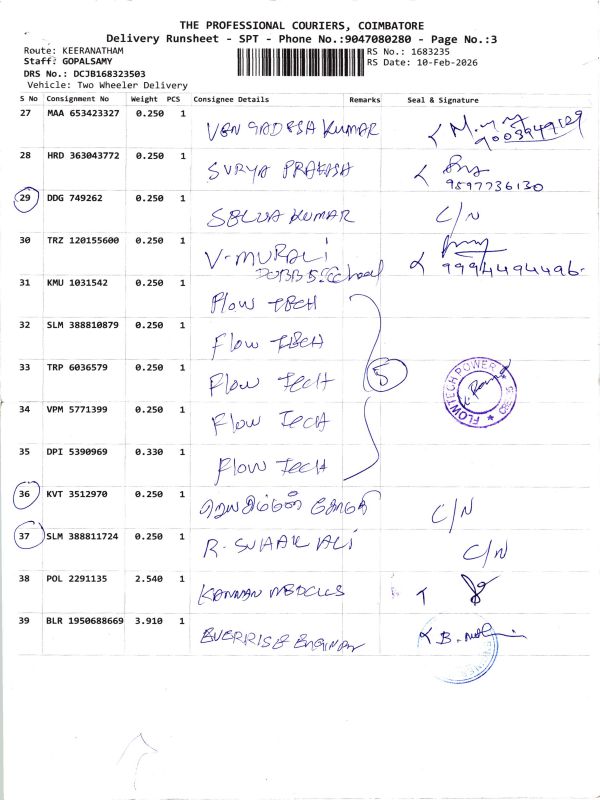 THE PROFESSIONAL COURIERS, COIMBATORE
Delivery Runsheet - SPT - Phone No.:9047080280 - Page No.:3
Route: KEERANATHAM
RS No.: 1683235
Staff: GOPALSAMY
RS Date: 10-Feb-2026
DRS No.: DCJB168323503
Vehicle: Two Wheeler Delivery
S No Consignment No Weight PCS Consignee Details Remarks Seal & Signature
27 MAA 653423327 0.250 1 VENGADESA KUMAR
28 HRD 363043772 0.250 1 SURYA PRAKASA
9597736130
29 DDG 749262 0.250 1 SELVA KUMAR C/N
30 TRZ 120155600 0.250 1 V-MURALI
9994494496
31 KMU 1031542 0.250 1 Flow TECH
32 SLM 388810879 0.250 1 Flow TECH
33 TRP 6036579 0.250 1 Flow TECH 5
FLOWTECH POWER
34 VPM 5771399 0.250 1 Flow TECH
35 DPI 5390969 0.330 1 Flow TECH
36 KVT 3512970 0.250 1 C/N
37 SLM 388811724 0.250 1 R. SUHAIL ALI C/N
38 POL 2291135 2.540 1 KANNAN
39 BLR 1950688669 3.910 1